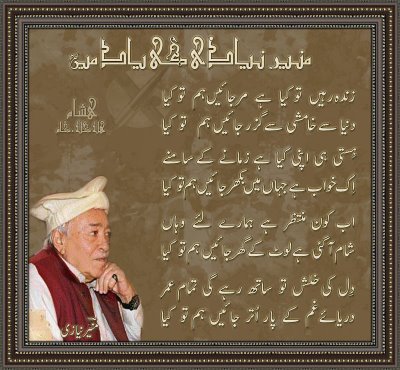 منیر نیازی کی یاد میں
زندہ رہیں تو کیا ہے مر جائیں ہم تو کیا
دنیا سے خامشی سے گزر جائیں ہم تو کیا
ہستی ہی اپنی کیا ہے زمانے کے سامنے
اِک خواب ہے جہاں میں بکھر جائیں ہم تو کیا
اب کون منتظر ہے ہمارے لئے وہاں
شام آگئی ہے لوٹ کے گھر جائیں ہم تو کیا
دِل کی خلش تو ساتھ رہے گی تمام عمر
دریائے غم کے پار اُتر جائیں ہم تو کیا
منیر نیازی